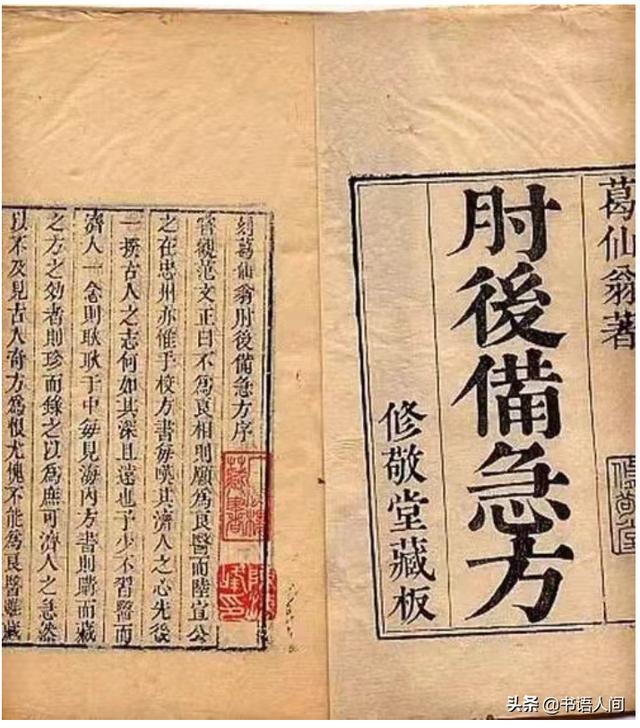 葛仙翁著
肘後備急方
修敬堂藏板
刻葛仙翁肘後備急方序
嘗觀范文正曰不爲良相則願爲良醫而陸宣公
之在忠州亦惟手校方書每嘆其濟人之心先後
一揆古人之志何如其深且遠也予少不習醫而
濟人一念則耿耿于中每見海內方書則購而藏
之方之効者則珍而錄之以爲庶可濟人之急然
以不及見古人奇方爲恨尤愧不能爲良醫雖藏
头条 @书语人间